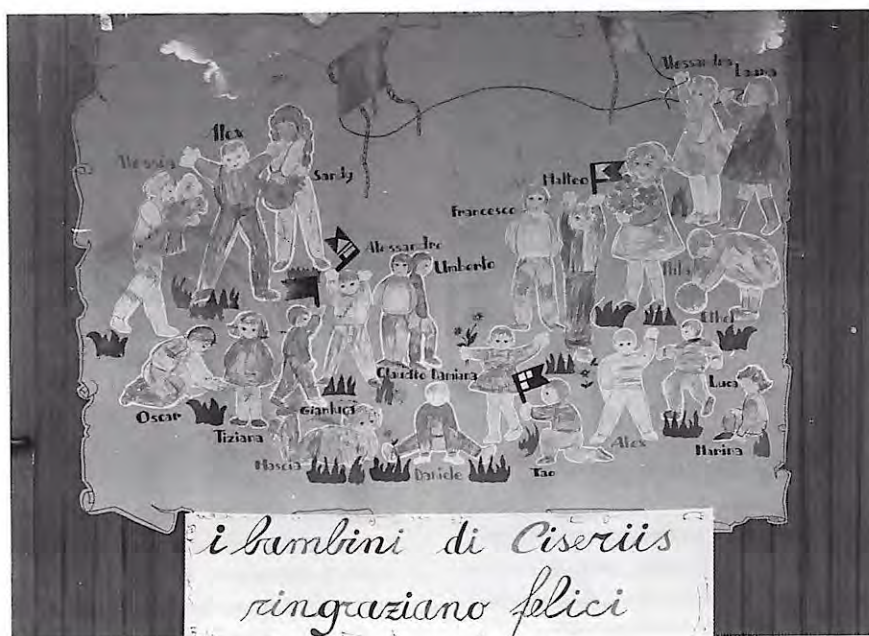 Alessandra Laura
Alex
Alessia
Sandy
Matteo
Francesco
Alessandro
Umberto
Ethel
Claudio Damiana
Luca
Oscar
Gianluca
Tiziana
Alex
Marina
Mascia
Daniele
Tao
i bambini di Ciseriis
ringraziano felici